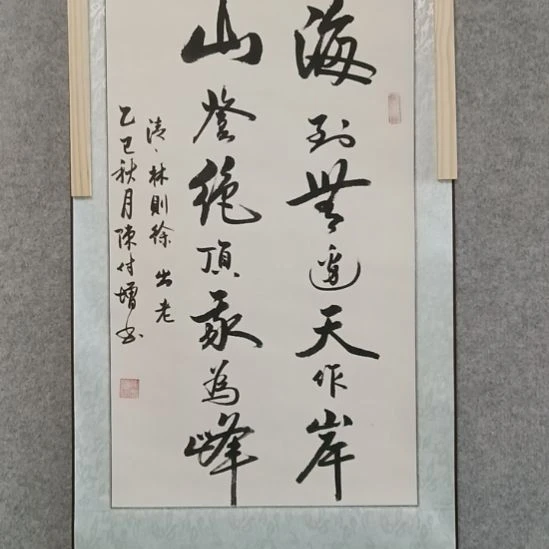 海到無邊天作岸
山登絕頂我為峰
清、林則徐 出老
乙巳秋月陳付增书